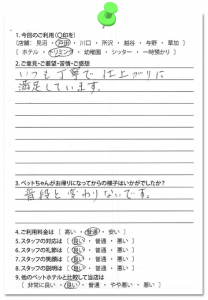 1.今回のご利用(○印を)
[店舗： 見沼 ・ 戸田 ・ 川口 ・ 所沢 ・ 越谷 ・ 与野 ・ 草加 ]
[ ホテル ・ トリミング ・ 幼稚園 ・ シッター ・ 一時預かり ]
2.ご意見・ご要望・苦情・ご感想
いつも丁寧で仕上がりに
満足しています。
3.ペットちゃんがお帰りになってからの様子はいかがでしたか?
普段と変わりないです。
4.ご利用料金は [ 高い ・ 普通 ・ 安い ]
5.スタッフの対応は [ 良い ・ 普通 ・ 悪い ]
6.スタッフの礼節は [ 良い ・ 普通 ・ 悪い ]
7.スタッフの笑顔は [ 良い ・ 普通 ・ 悪い ]
8.スタッフの説明は [ 良い ・ 普通 ・ 悪い ]
9.他のペットホテルと比較して当店は
[ 非常に良い ・ 良い ・ 普通 ・ やや悪い ・ 悪い ]